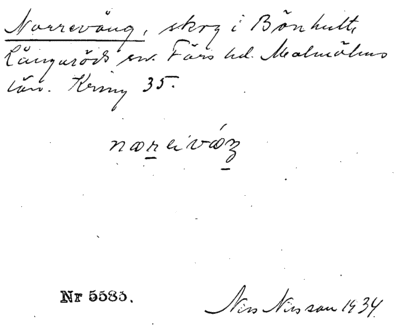 Norrevång, skog i Bönhult,
Långaröds sn. Färs hd. Malmöhus
län. Kring 35.
Nr 5585.
Nils Nilsson 1934.